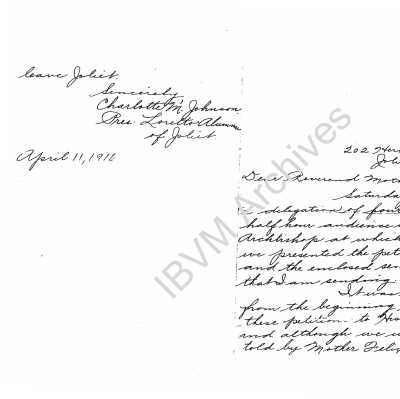 leave Joliet.
Sincerely
Charlotte M. Johnson
Pres. Loretto Alumnae
of Joliet
April 11, 1916
202 Her
Joli
Dear Reverend Mot
Saturda
a delegation of four
half hour audience
Archbishop at which
we presented the pet
and the enclosed sen
that I am sending
It was
from the beginning
these petition to His
and although we w
told by Mother Felix
IBVM Archives